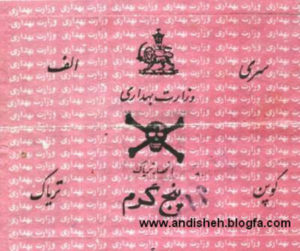 سری الف
وزارت بهداری
الف تریاک
کوپن تریاک
پنج گرم
www.andisheh.blogfa.com